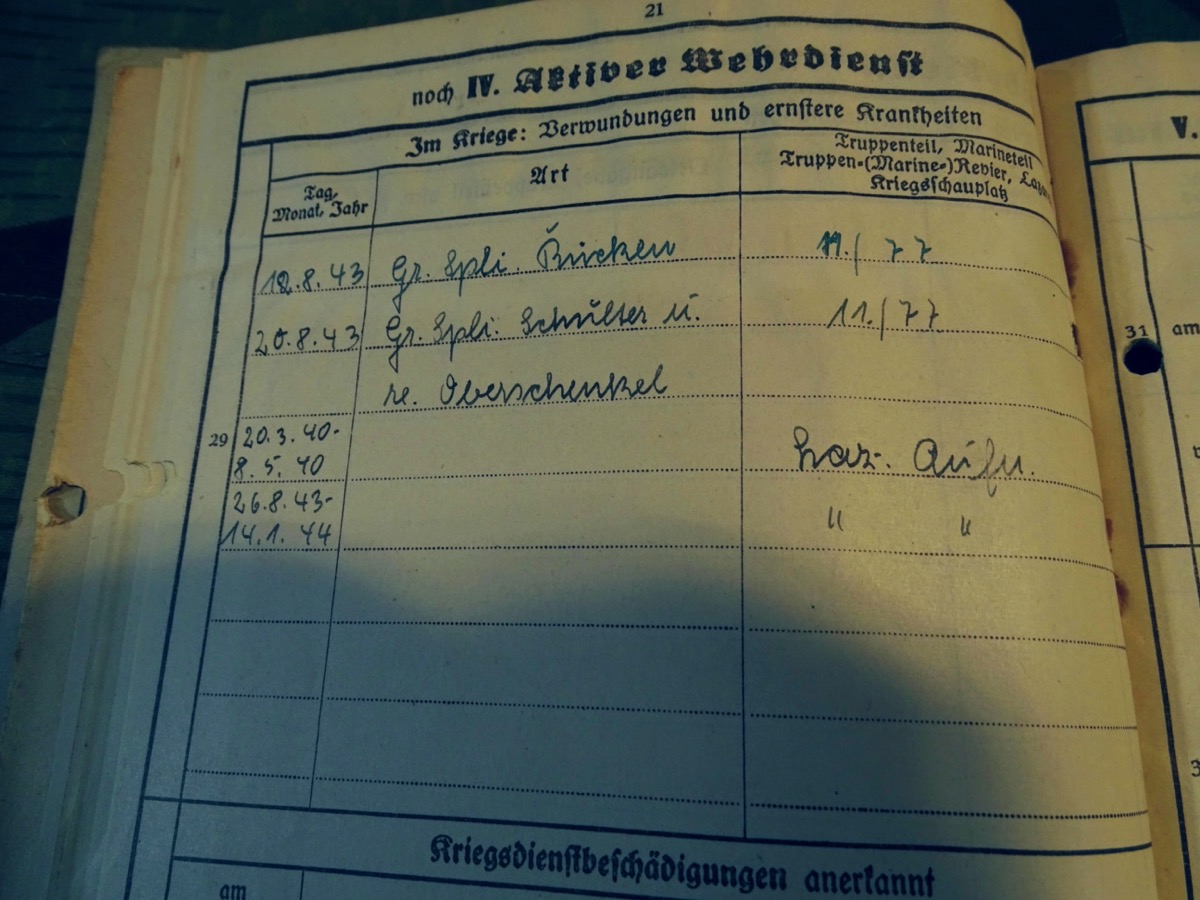 21
noch IV. Aktiver Wehrdienst
Im Kriege: Verwundungen und ernstere Krankheiten
Tag, Monat, Jahr
Art
Truppenteil, Marineteil
Truppen-(Marine-)Revier,
Kriegsschauplatz
12.8.43 Gr. Spli. Rücken 11./77
20.8.43 Gr. Spli. Schulter u. 11./77
re. Oberschenkel
29 20.3.40-
8.5.40 Laz. Aufn.
26.8.43- " "
14.1.44
Kriegsdienstbeschädigungen anerkannt
am
V.
31 am